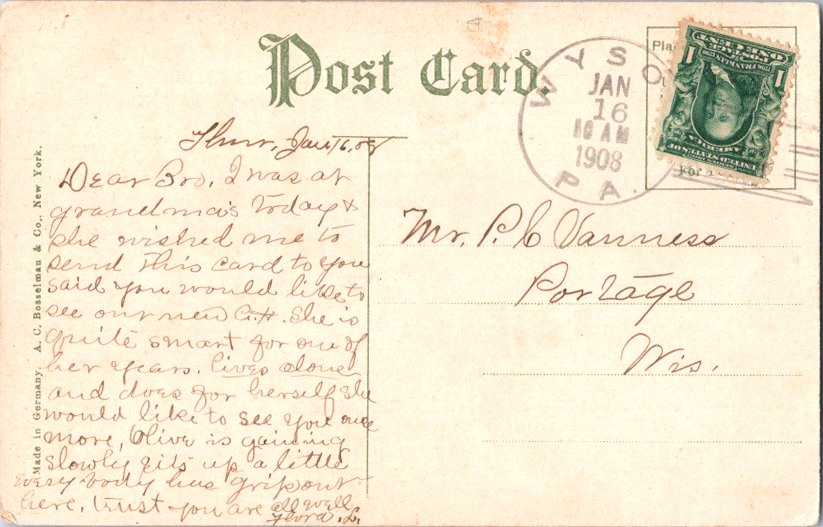 Post Card.
WYSO
JAN
16
10 AM
1908
PA.
Pla
For
UNITED STATES OF AMERICA
FRANKLIN
POSTAGE
ONE CENT
1 1
Made in Germany. A. C. Bosselman & Co., New York.
Thur, Jan 16, 08
Dear Bro, I was at
grandma's today &
she wished me to
send this card to you
said you would like to
see our new C.H. She is
quite smart for one of
her years. lives alone
and does for herself she
would like to see you once
more, Olive is gaining
slowly gits up a little
every body has grip out
here, trust you are all well
L.
Mr. P. C Vanness
Portage
Wis.